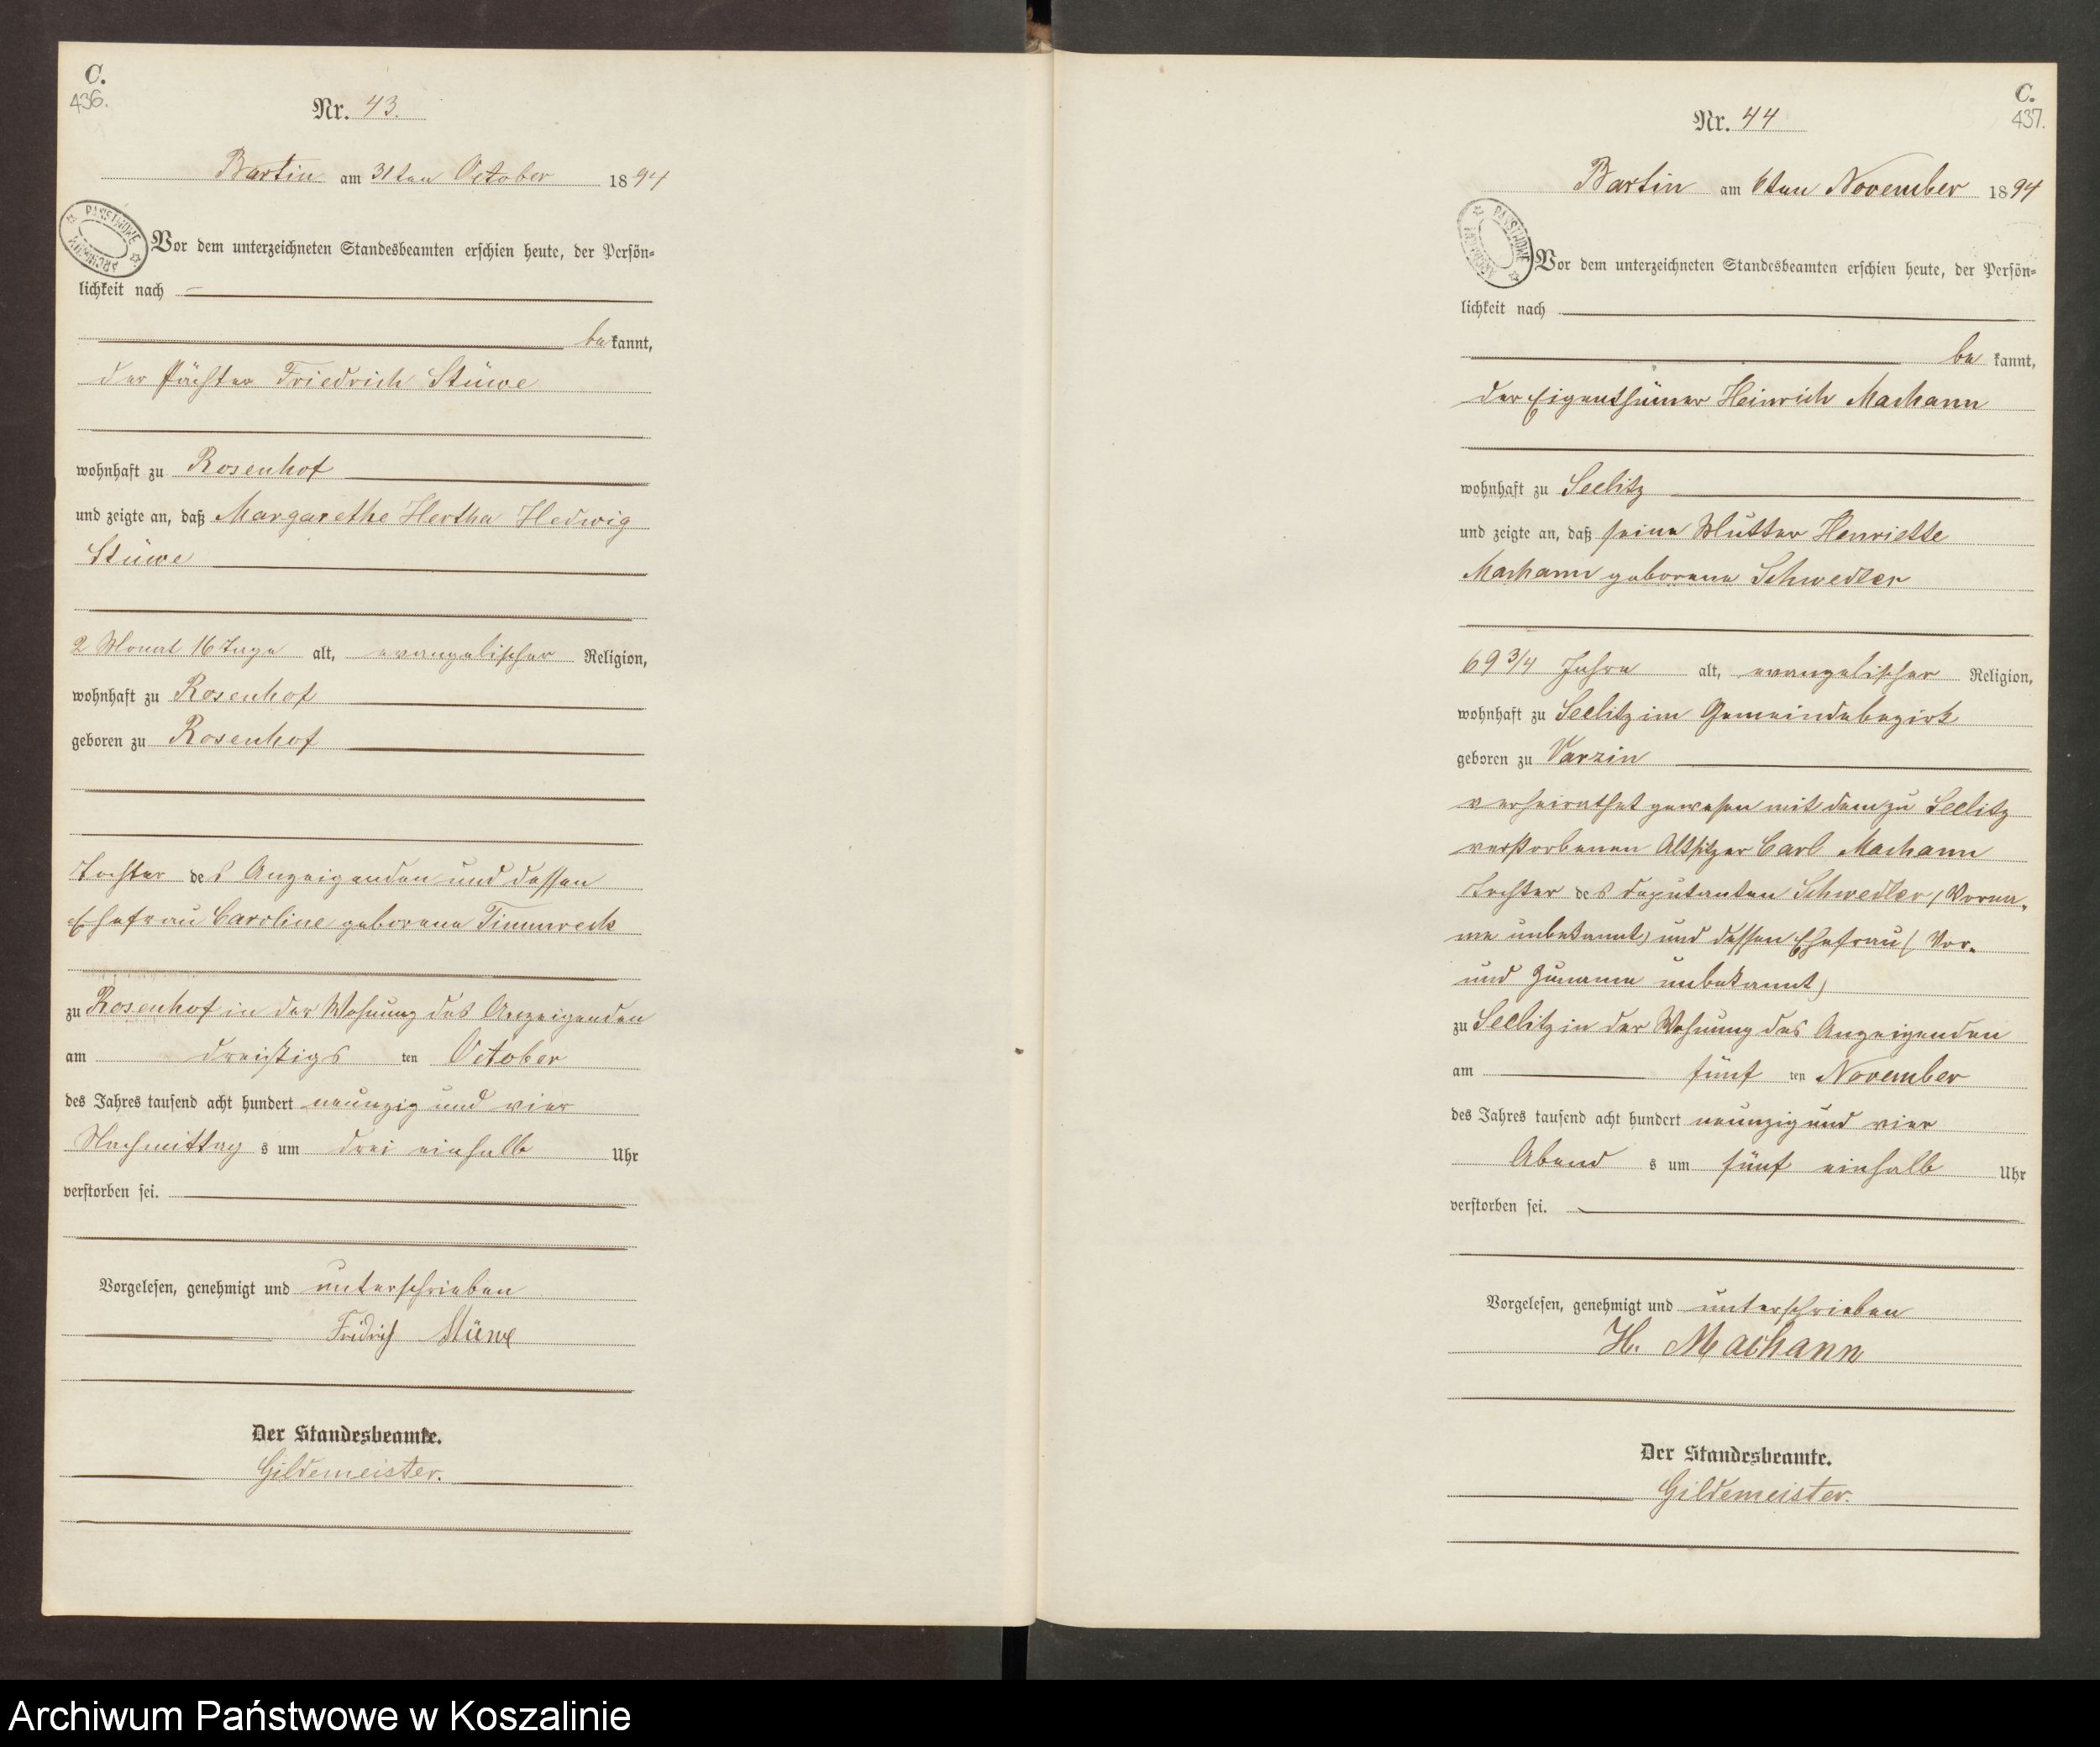 C.
436.
Nr. 43.
Bartin am 31ten October 1894
PAŃSTWOWE ARCHIWUM
Vor dem unterzeichneten Standesbeamten erschien heute, der Persön-
lichkeit nach
be kannt,
der Pächter Friedrich Stüwe
wohnhaft zu Rosenhof
und zeigte an, daß Margarethe Hertha Hedwig
Stüwe
2 Monat 16 Tage alt, evangelischer Religion,
wohnhaft zu Rosenhof
geboren zu Rosenhof
Tochter des Anzeigenden und dessen
Ehefrau Caroline geborene Timmreck
zu Rosenhof in der Wohnung des Anzeigenden
am dreißigs ten October
des Jahres tausend acht hundert neunzig und vier
Nachmittag s um drei einhalb Uhr
verstorben sei.
Vorgelesen, genehmigt und unterschrieben
Fridrich Stüwe
Der Standesbeamte.
Gildemeister.
C.
437.
Nr. 44
Bartin am 6ten November 1894
PAŃSTWOWE ARCHIWUM
Vor dem unterzeichneten Standesbeamten erschien heute, der Persön-
lichkeit nach
be kannt,
der Eigenthümer Heinrich Machann
wohnhaft zu Seelitz
und zeigte an, daß seine Mutter Henriette
Machann geborene Schwedler
69 3/4 Jahre alt, evangelischer Religion,
wohnhaft zu Seelitz im Gemeindebezirk
geboren zu Varzin
verheirathet gewesen mit dem zu Seelitz
verstorbenen Altsitzer Carl Machann
Tochter des Deputanten Schwedler (Vorna-
me unbekannt) und dessen Ehefrau (Vor-
und Zuname unbekannt)
zu Seelitz in der Wohnung des Anzeigenden
am fünf ten November
des Jahres tausend acht hundert neunzig und vier
Abend s um fünf einhalb Uhr
verstorben sei.
Vorgelesen, genehmigt und unterschrieben
H. Machann
Der Standesbeamte.
Gildemeister.
Archiwum Państwowe w Koszalinie